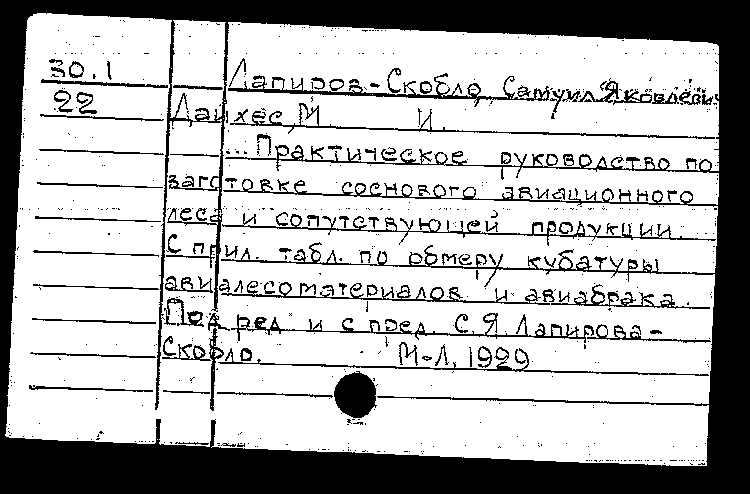 30.1 Лапиров-Скобло, Самуил Яковлевич
22 Дайхес, М И.
...Практическое руководство по
заготовке соснового авиационного
леса и сопутствующей продукции.
С прил. табл. по обмеру кубатуры
авиалесоматериалов и авиабрака.
Под ред и с пред. С.Я. Лапирова-
Скобло. М-Л, 1929